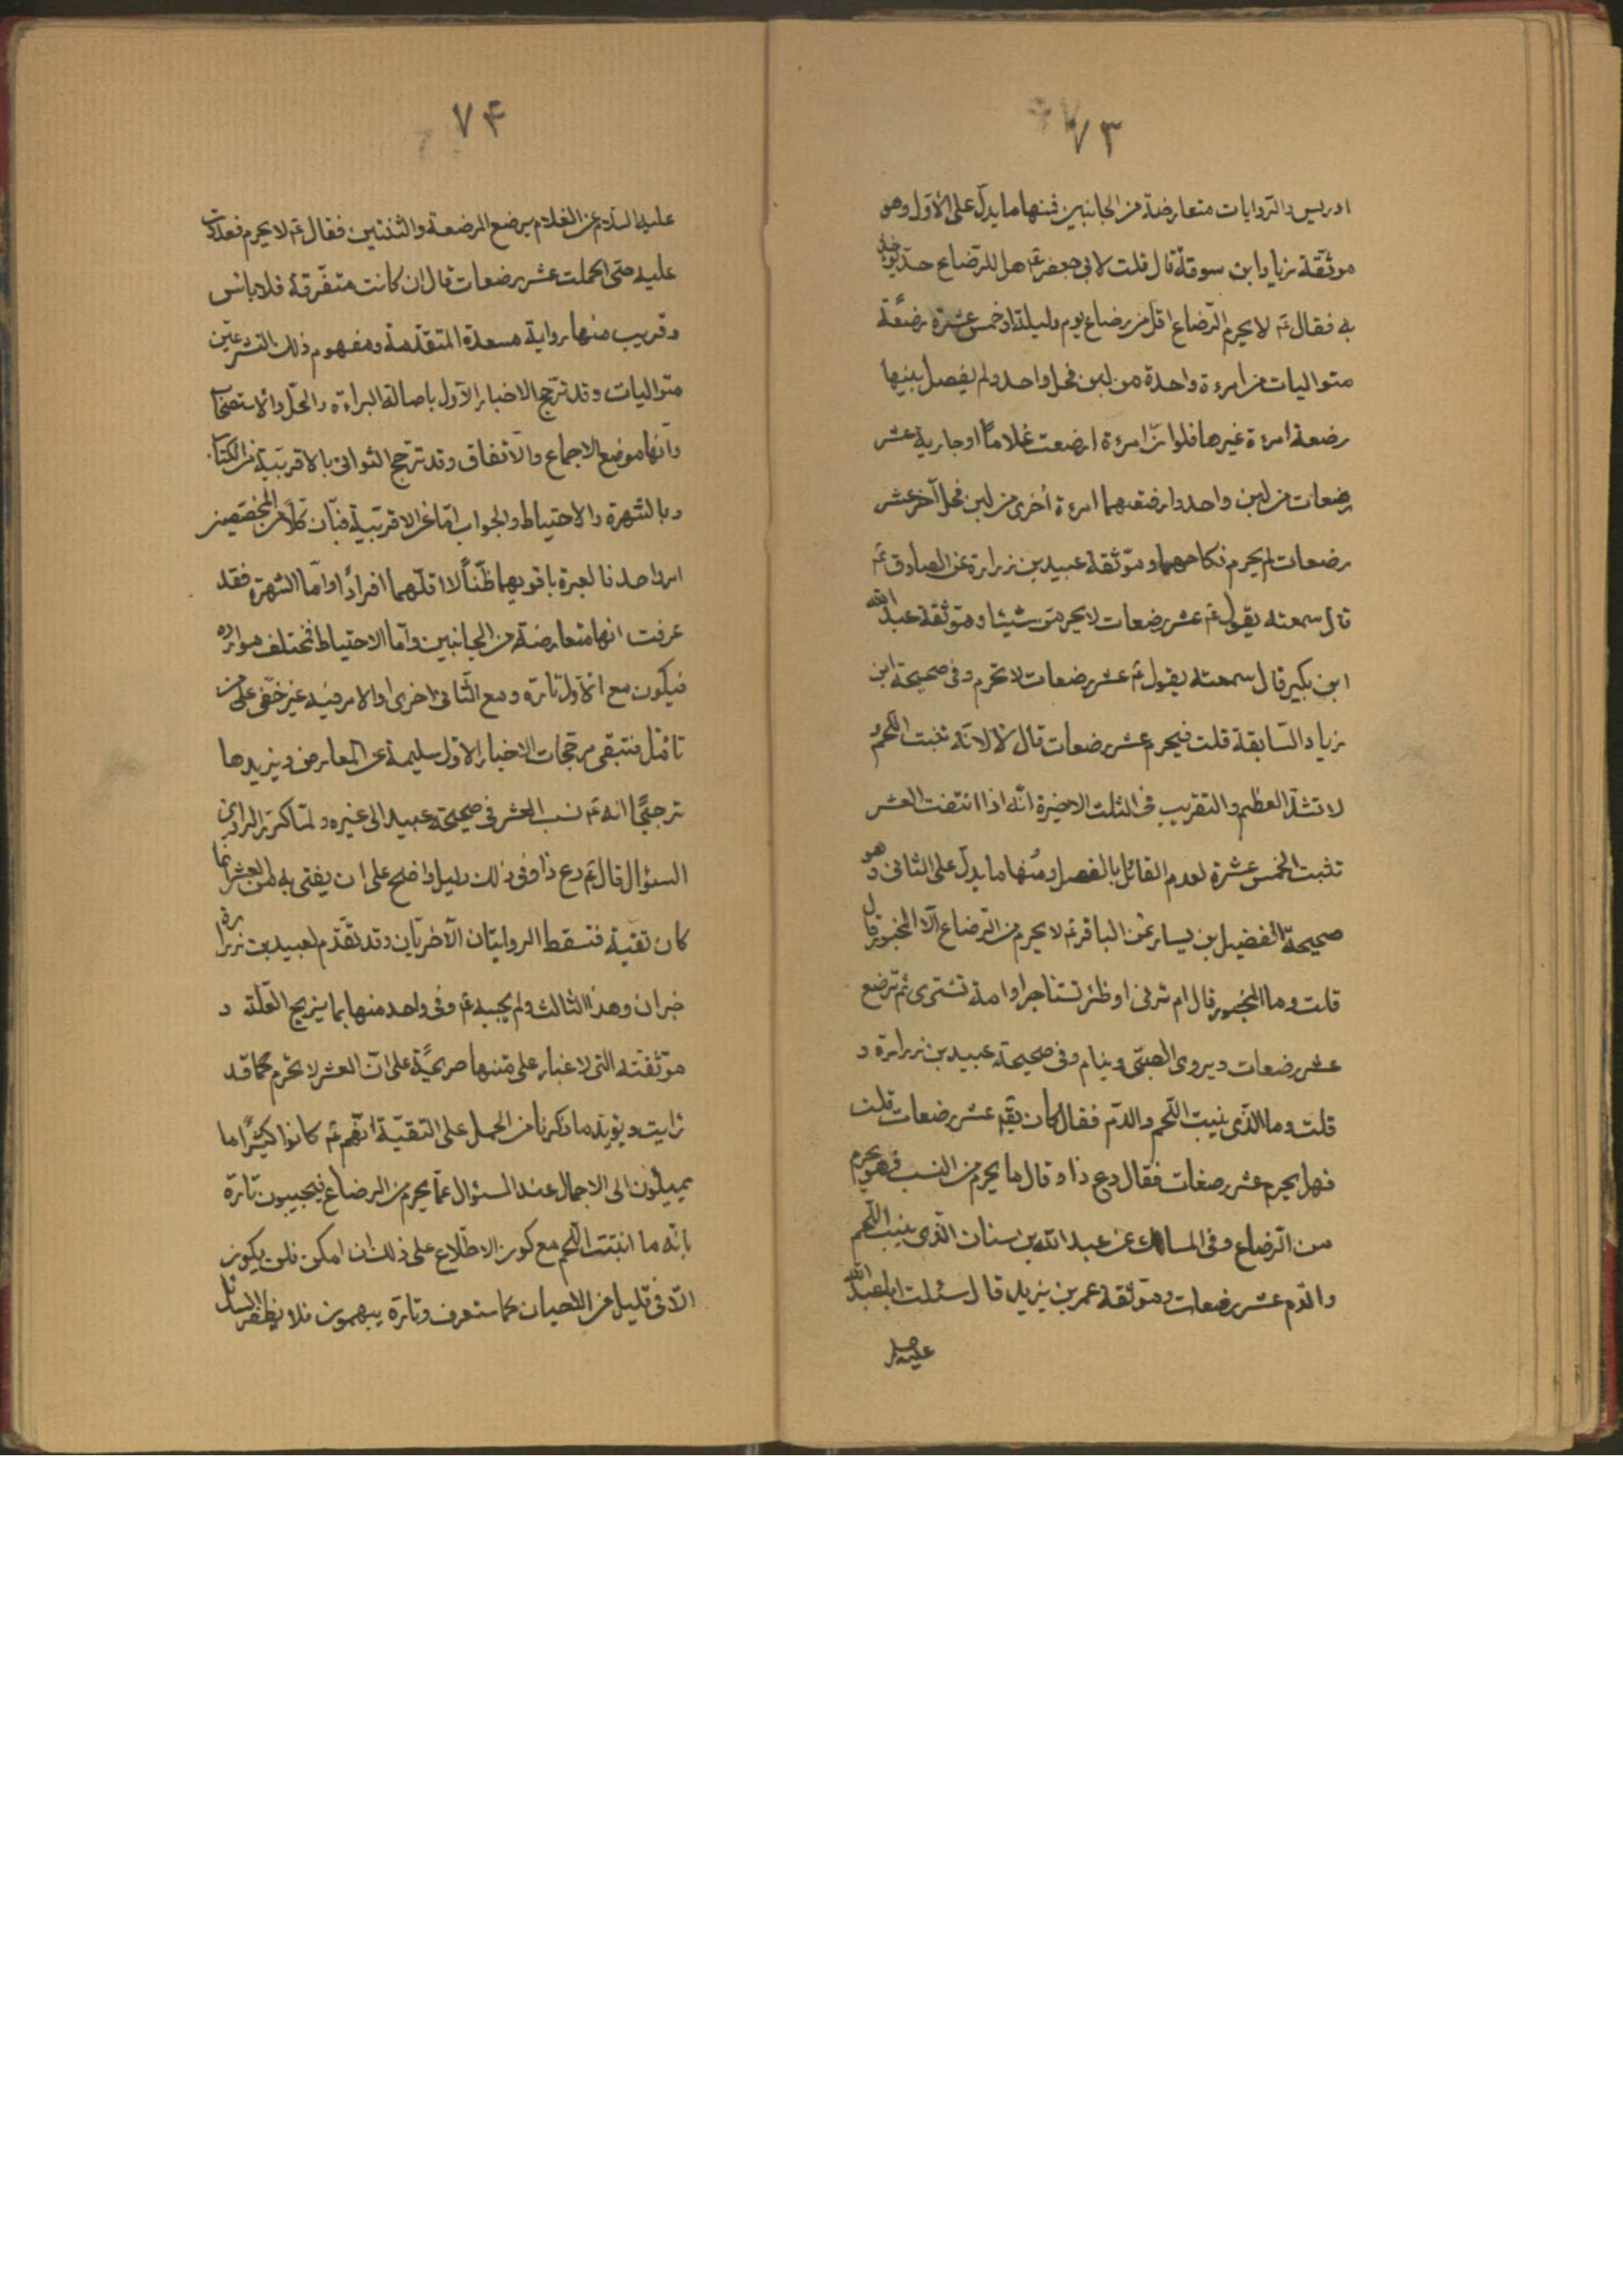 ٧٣
ادريس والروايات متعارضة من الجانبين فمنها ما يدل على الاول وهو
موثقة زياد ابن سوقة قال قلت لابى جعفر ع هل للرضاع حد يؤخذ
به فقال ع لا يحرم الرضاع اقل من رضاع يوم وليلة او خمس عشرة رضعة
متواليات من امرءة واحدة من لبن فحل واحد ولم يفصل بينها
رضعة امرءة غيرها فلو ان امرءة ارضعت غلاماً او جارية عشر
رضعات من لبن واحد وارضعتهما امرءة أخرى من لبن فحل آخر عشر
رضعات لم يحرم نكاحهما وموثقة عبيد بن زرارة عن الصادق ع
قال سمعته يقول ع عشر رضعات لا يحرمن شيئا وموثقة عبد الله
ابن بكير قال سمعته يقول ع عشر رضعات لا تحرم وفى صحيحة ابن
زياد السابقة قلت فيحرم عشر رضعات قال لا لانه لا تنبت اللحم و
لا تشد العظم والتقريب فى الثلث الاخيرة انه اذا انتفت العشر
تثبت الخمس عشرة لعدم القائل بالفصل ومنها ما يدل على الثانى وهو
صحيحة الفضيل بن يسار عن الباقر ع لا يحرم من الرضاع الا المخبور قال
قلت وما المخبور قال ام تربى او ظئر تستاجر او امة تشترى ثم ترضع
عشر رضعات ويروى الصبى وينام وفى صحيحة عبيد بن زرارة و
قلت وما الذى ينبت اللحم والدم فقال كان يقم عشر رضعات قلت
فهل يحرم عشر رضعات فقال دع ذا وقال ما يحرم من النسب فهو يحرم
من الرضاع وفى المسالك عن عبد الله بن سنان الذى ينبت اللحم
والدم عشر رضعات وموثقة عمر بن يزيد قال سئلت ابا عبد الله
عليه
٧۴
عليه السلام عن الغلام يرضع الرضعة والثنتين فقال ع لا يحرم فعددت
عليه حتى اكملت عشر رضعات قال ان كانت متفرقة فلا باس
وقريب منها رواية مسعدة المتقدمة ومفهوم ذلك
متواليات وقد ترجح الاخبار الاول باصالة البراءة والحل والاستصحاب
وانها موضع الاجماع والاتفاق وقد ترجح الثوانى بالاقربية من الكتاب
وبالشهرة والاحتياط والجواب اما عن الاقربية فبان كلا من المخصصين
امر واحد فالعبرة باقويهما ظناً لا اقلهما افراداً واما الشهرة فقد
عرفت انها متعارضة من الجانبين واما الاحتياط فتختلف موارده
فيكون مع الاول تارة ومع الثانى اخرى والامر فيه غير خفى على من
تامل فتبقى مرجحات الاخبار الاول سليمة عن المعارض ويزيدها
ترجيحاً انه ع نسب العشر فى صحيحة عبيد الى غيره ولما كرر الراوى
السئوال قال ع دع ذا وفى ذلك دليل واضح على ان يفتى به من العشر انما
كان تقية فتسقط الروايتان الآخريان وقد تقدم لعبيد بن زرارة
خبران وهذا الثالث ولم يجبه ع وفى واحد منها بما يزيح العلة و
موثقته التى لا غبار على متنها صريحة على ان العشر لا تحرم كما قد
رايت ويؤيد ما ذكرنا من الحمل على التقية انهم ع كانوا كثيراً ما
يميلون الى الاجمال عند السئوال عما يحرم من الرضاع فيجيبون تارة
بانه ما انبتت اللحم مع كون الاطلاع على ذلك ان امكن فلن يكون
الا فى قليل من الاحيان كما ستعرف وتارة يبهمون فلا يظفر السائل